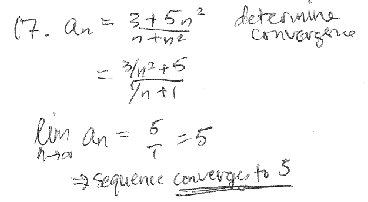 17. an = 3+5n²/n+n² determine convergence
= 3/n²+5 / 1/n+1
lim n→∞ an = 5/1 = 5
⇒ sequence converges to 5